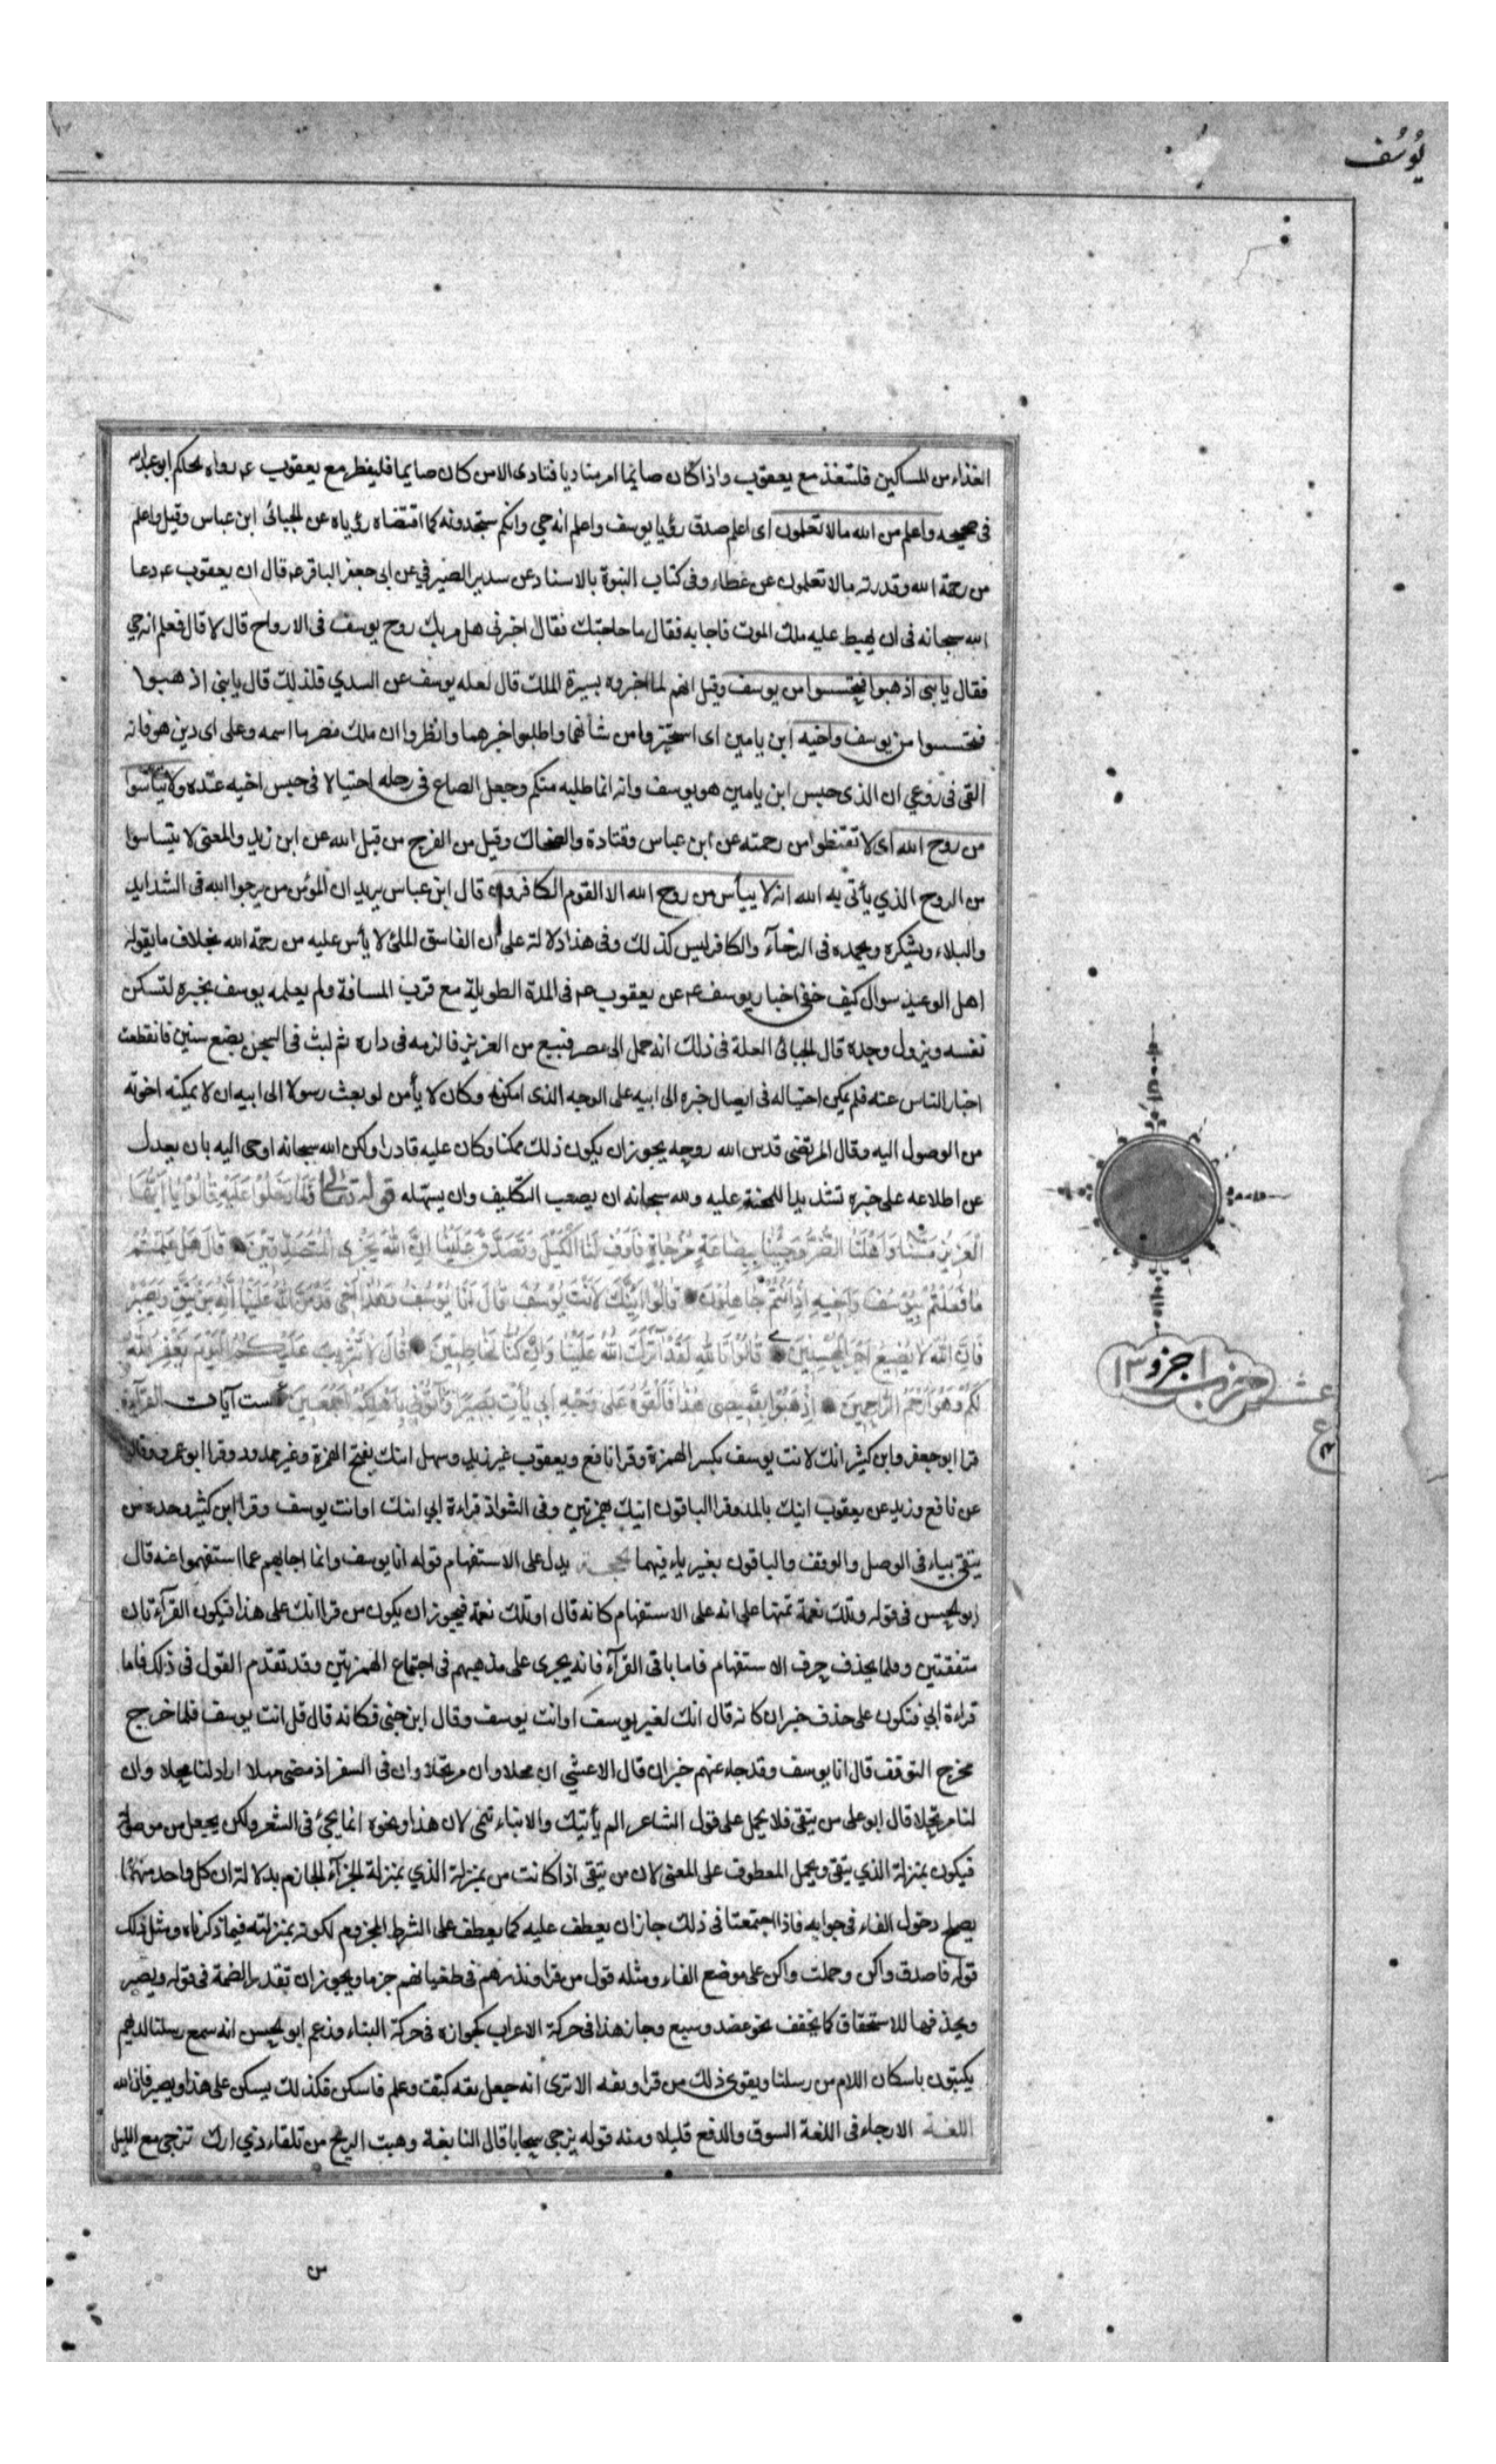 يُوسُف
الغذاء من المساكين فليتغذ مع يعقوب واذا كان صايما امر مناديا فنادى الا من كان صايما فليفطر مع يعقوب عـ رواه الحاكم ابو عبد الله
فى صحيحه واعلم من الله مالا تعلمون اى اعلم صدق رؤيا يوسف واعلم انه حي وانكم ستجدونه كما اقتضاه رؤياه عن الجبائى ابن عباس وقيل واعلم
من رحمة الله وقدرته مالا تعلمون عن عطاء وفى كتاب النبوة بالاسناد عن سدير الصيرفي عن ابى جعفر الباقر عـ قال ان يعقوب عـ دعا
الله سبحانه فى ان يهبط عليه ملك الموت فاجابه فقال ما حاجتك فقال اخبرنى هل مر بك روح يوسف فى الارواح قال لا قال فعلم انه حي
فقال يا بنى اذهبوا فتحسسوا من يوسف وقيل انهم لما اخبروه بسيرة الملك قال لعله يوسف عن السدي فلذلك قال يا بنى اذهبوا
فتحسسوا من يوسف واخيه ابن يامين اى استخبروا من شأنهما واطلبوا خبرهما وانظروا ان ملك مصر ما اسمه وعلى اى دين هو فانه
القى فى روعي ان الذى حبس ابن يامين هو يوسف وانه انما طلبه منكم وجعل الصاع فى رحله احتيالا فى حبس اخيه عنده ولا تيأسوا
من روح الله اى لا تقنطوا من رحمته عن ابن عباس وقتادة والضحاك وقيل من الفرج من قبل الله عن ابن زيد والمعنى لا تيئسوا
من الروح الذي يأتى به الله انه لا ييأس من روح الله الا القوم الكافرون قال ابن عباس يريد ان المؤمن من يرجوا الله فى الشدايد
والبلاء ويشكره ويحمده فى الرخآء والكافر ليس كذلك وفى هذا دلالة على ان الفاسق الملى لا يأس عليه من رحمة الله بخلاف ما يقوله
اهل الوعيد سوال كيف خفى اخبار يوسف عـ عن يعقوب عـ فى المدة الطويلة مع قرب المسافة ولم يعلمه يوسف بخبره لتسكن
نفسه ويزول وجده قال الجبائى العلة فى ذلك انه حمل الى مصر فبيع من العزيز فالزمه فى داره ثم لبث فى السجن بضع سنين فانقطعت
اخبار الناس عنه فلم يمكن احتياله فى ايصال خبره الى ابيه على الوجه الذى امكنه وكان لا يأمن لو بعث رسولا الى ابيه ان لا يمكنه اخوته
من الوصول اليه وقال المرتضى قدس الله روحه يجوز ان يكون ذلك ممكنا وكان عليه قادرا ولكن الله سبحانه اوحى اليه بان يعدل
عن اطلاعه على خبره تشديدا للمحنة عليه ولله سبحانه ان يصعب التكليف وان يسهله قوله تعالى فَلَمَّا دَخَلُوا عَلَيْهِ قَالُوا يَا أَيُّهَا
الْعَزِيزُ مَسَّنَا وَأَهْلَنَا الضُّرُّ وَجِئْنَا بِبِضَاعَةٍ مُزْجَاةٍ فَأَوْفِ لَنَا الْكَيْلَ وَتَصَدَّقْ عَلَيْنَا إِنَّ اللَّهَ يَجْزِى الْمُتَصَدِّقِينَ قَالَ هَلْ عَلِمْتُمْ
مَا فَعَلْتُمْ بِيُوسُفَ وَأَخِيهِ إِذْ أَنْتُمْ جَاهِلُونَ قَالُوا أَئِنَّكَ لَأَنْتَ يُوسُفُ قَالَ أَنَا يُوسُفُ وَهَذَا أَخِى قَدْ مَنَّ اللَّهُ عَلَيْنَا إِنَّهُ مَنْ يَتَّقِ وَيَصْبِرْ
فَإِنَّ اللَّهَ لَا يُضِيعُ أَجْرَ الْمُحْسِنِينَ قَالُوا تَاللَّهِ لَقَدْ آثَرَكَ اللَّهُ عَلَيْنَا وَإِنْ كُنَّا لَخَاطِئِينَ قَالَ لَا تَثْرِيبَ عَلَيْكُمُ الْيَوْمَ يَغْفِرُ اللَّهُ
لَكُمْ وَهُوَ أَرْحَمُ الرَّاحِمِينَ اذْهَبُوا بِقَمِيصِى هَذَا فَأَلْقُوهُ عَلَى وَجْهِ أَبِى يَأْتِ بَصِيرًا وَأْتُونِى بِأَهْلِكُمْ أَجْمَعِينَ ست آيات القرآءة
قرا ابو جعفر وابن كثير انك لانت يوسف بكسر الهمزة وقرا نافع ويعقوب غير زيد وسهل اينك بفتح الهمزة وغير ممدود وقرا ابو عمرو وقالون
عن نافع وزيد عن يعقوب اينك بالمد وقرا الباقون ائنك بهمزتين وفى الشواذ قراءة ابي ائنك او انت يوسف وقرا ابن كثير وحده من
يتقى بياء فى الوصل والوقف والباقون بغير ياء فيهما الحجة يدل على الاستفهام قوله انا يوسف وانما اجابهم عما استفهموا عنه قال
ابو الحسن فى قوله وتلك نعمة تمنها على انه على الاستفهام كانه قال او تلك نعمة فيجوز ان يكون من قرا انك على هذا فيكون القرآءتان
متفقتين وقلما يحذف حرف الاستفهام فاما باقى القرآء فانه يجرى على مذهبهم فى اجتماع الهمزتين وقد تقدم القول فى ذلك فاما
قراءة ابي فتكون على حذف خبر ان كانه قال انك لغير يوسف او انت يوسف وقال ابن جنى فكانه قال قل انت يوسف فلما خرج
مخرج التوقف قال انا يوسف وقد جاء عنهم خبر ان قال الاعشي ان محلا وان مرتحلا وان فى السفر اذ مضى مهلا اراد لنا محلا وان
لنا مرتحلا قال ابو على من يتقى فلا يحمل على قول الشاعر الم يأتيك والانباء تنمى لان هذا ونحوه انما يجئ فى الشعر ولكن يجعل من موصولة
فيكون بمنزلة الذي يتقى ويحمل المعطوف على المعنى لان من يتقى اذا كانت من بمنزلة الذي بمنزلة الجزآء الجازم بدلالة ان كل واحد منهما
يصلح دخول الفاء فى جوابه فاذا اجتمعتا فى ذلك جاز ان يعطف عليه كما يعطف على الشرط المجزوم لكونه بمنزلته فيما ذكرناه ومثل ذلك
قوله فاصدق واكن وحملت واكن على موضع الفاء ومثله قول من قرا ونذرهم فى طغيانهم جزما ويجوز ان تقدر الضمة فى قوله ويصبر
ويحذفها للاستخفاف كما يخفف نحو عضد وسبع وجاز هذا فى حركة الاعراب كجوازه فى حركة البناء وزعم ابو الحسن انه سمع رسلنا لديهم
يكتبون باسكان اللام من رسلنا ويقوى ذلك من قرا ويتقه الا ترى انه جعل تقه ككتف وعلم فاسكن فكذلك يسكن على هذا ويصبر فان الله
اللغة الازجاء فى اللغة السوق والدفع قليلا ومنه قوله يزجى سحابا قال النابغة وهبت الريح من تلقاء ذي ارك تزجى مع الليل
حزب ١ جزو ١٣
عشر
ع